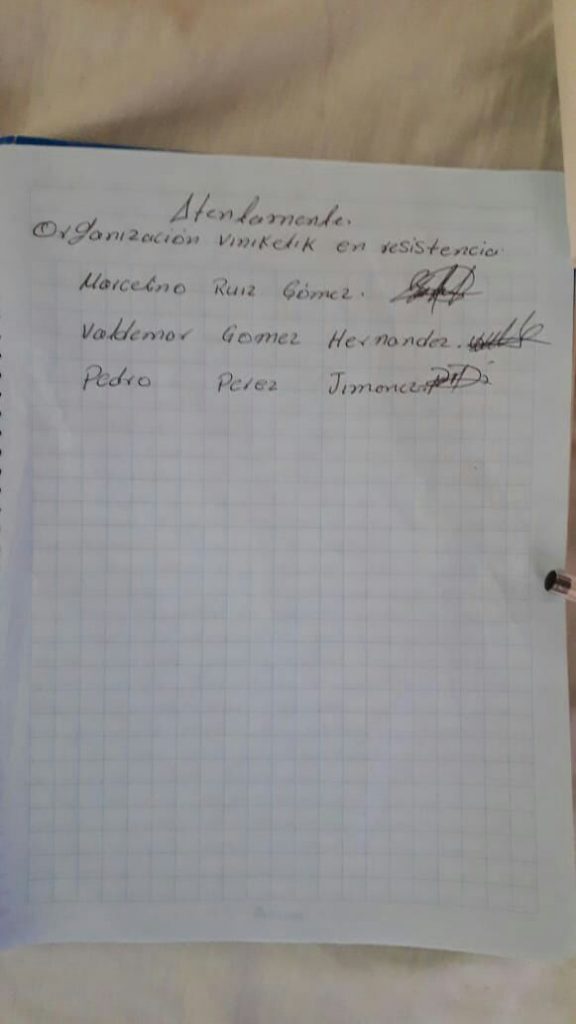 Atentamente.
Organización Viniketik en resistencia.
Marcelino Ruiz Gómez.
Valdemar Gomez Hernandez.
Pedro Perez Jimenez.